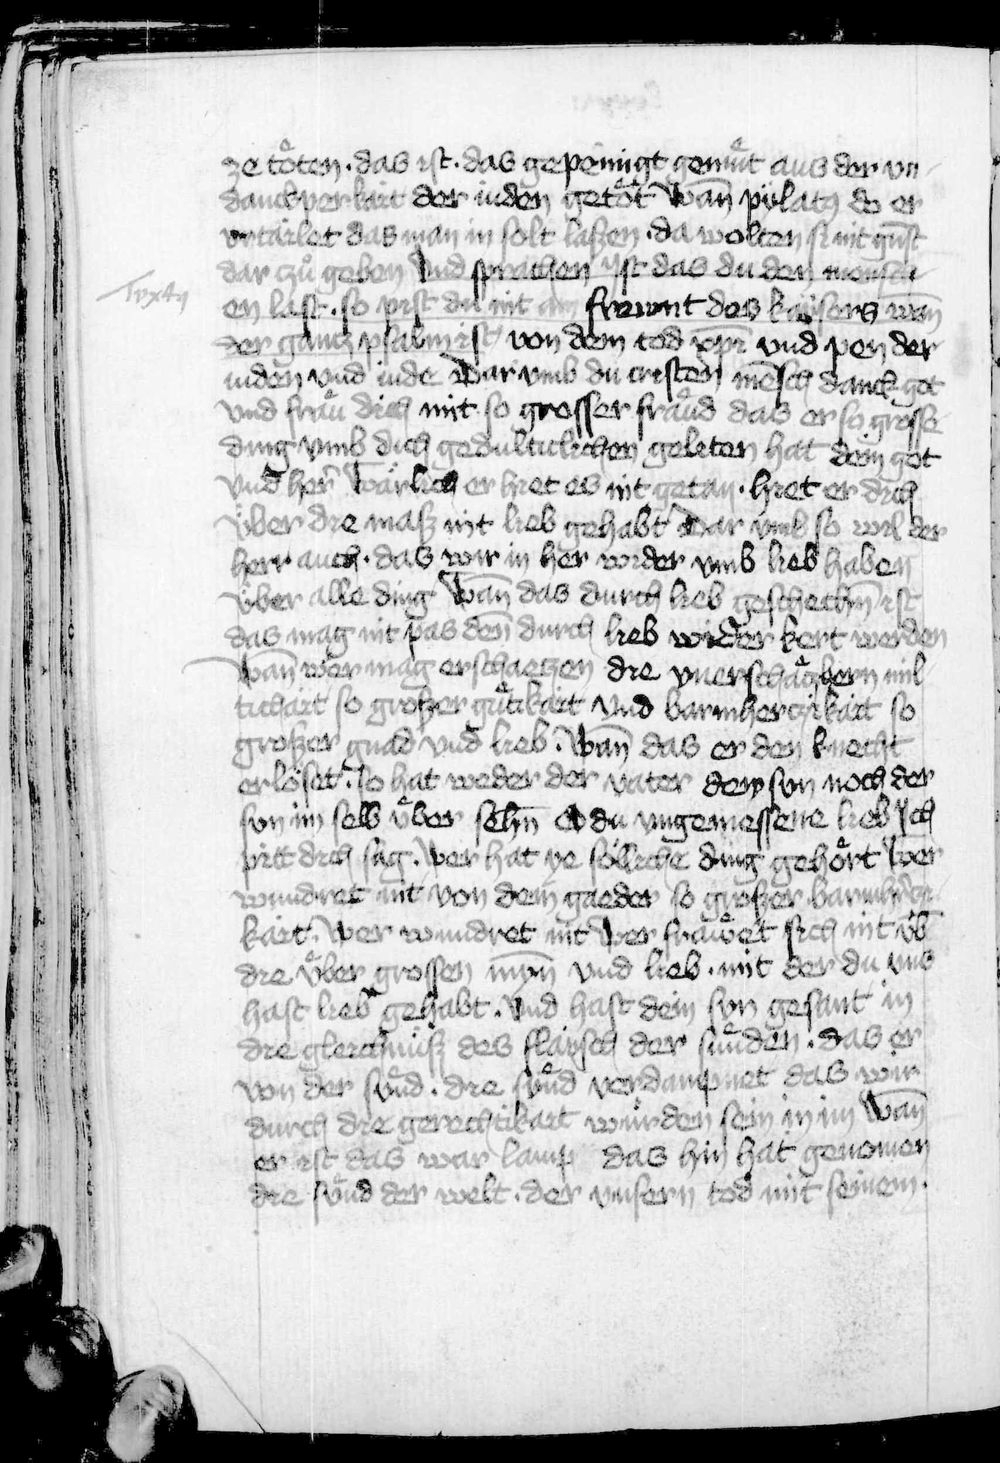 ze toͤten · das ist · das gepeinigt gemuͤt aus der vn
danckperkait der iuden getoͤt Wan̄ pylatꝯ do er
vrtailet das man in solt laszen · da wolten si nit gunst
dar czů geben Vnd sprachen Ist das du den mensch
en last · so pist du nit ain frewnt des kaysers wan̄
der gantz psalm ist von dem tod xp̄i vnd pen der
iuden vnd iude Dar vmb du cristen mēsch danck got
vnd fraͤu dich mit so grosser fraͤud das er so grosse
ding vmb dich gedultiklichen geliten hat dein got
vnd her̄ Waͤrlich er hiet es nit getan · hiet er dich
Vͤber die masz nit lieb gehabt Dar vmb so wil der
herr auch · das wir in her wider vmb lieb haben
Vͤber alle ding Wan̄ das durch lieb geschechn̄ ist
das mag nit pas den̄ durch lieb wider kert werden
Wan̄ wer mag erschaetzen die vnerschaͤtzbern mil
tichait so groszer guͤtikait vnd barmherczikait so
groszer gnad vnd lieb · Wan̄ das er den knecht
erlöset · so hat weder der vater dem sun noch der
sun im selb vͤber sehn̄ O du vngemessene lieb Ich
pitt dich sag · Wer hat ye sölliche ding gehoͤrt Wer
wundret nit von dem gaeder so groszer barmherczi
kait · Wer wundret nit Wer fraẘet sich nit vb̄
die vͤber grossen myn̄ vnd lieb · mit der du vns
hast lieb gehabt · Vnd hast dein sun gesant in
die gleichnüsz des flaysch der suͤnden · das er
von der suͤnd · die suͤnd verdampnet das wir
durch die gerechtikait wuͤrden sein in im Wan̄
er ist das war lamp das hin hat genomen
die suͤnd der welt · der vnsern tod mit seinem ·